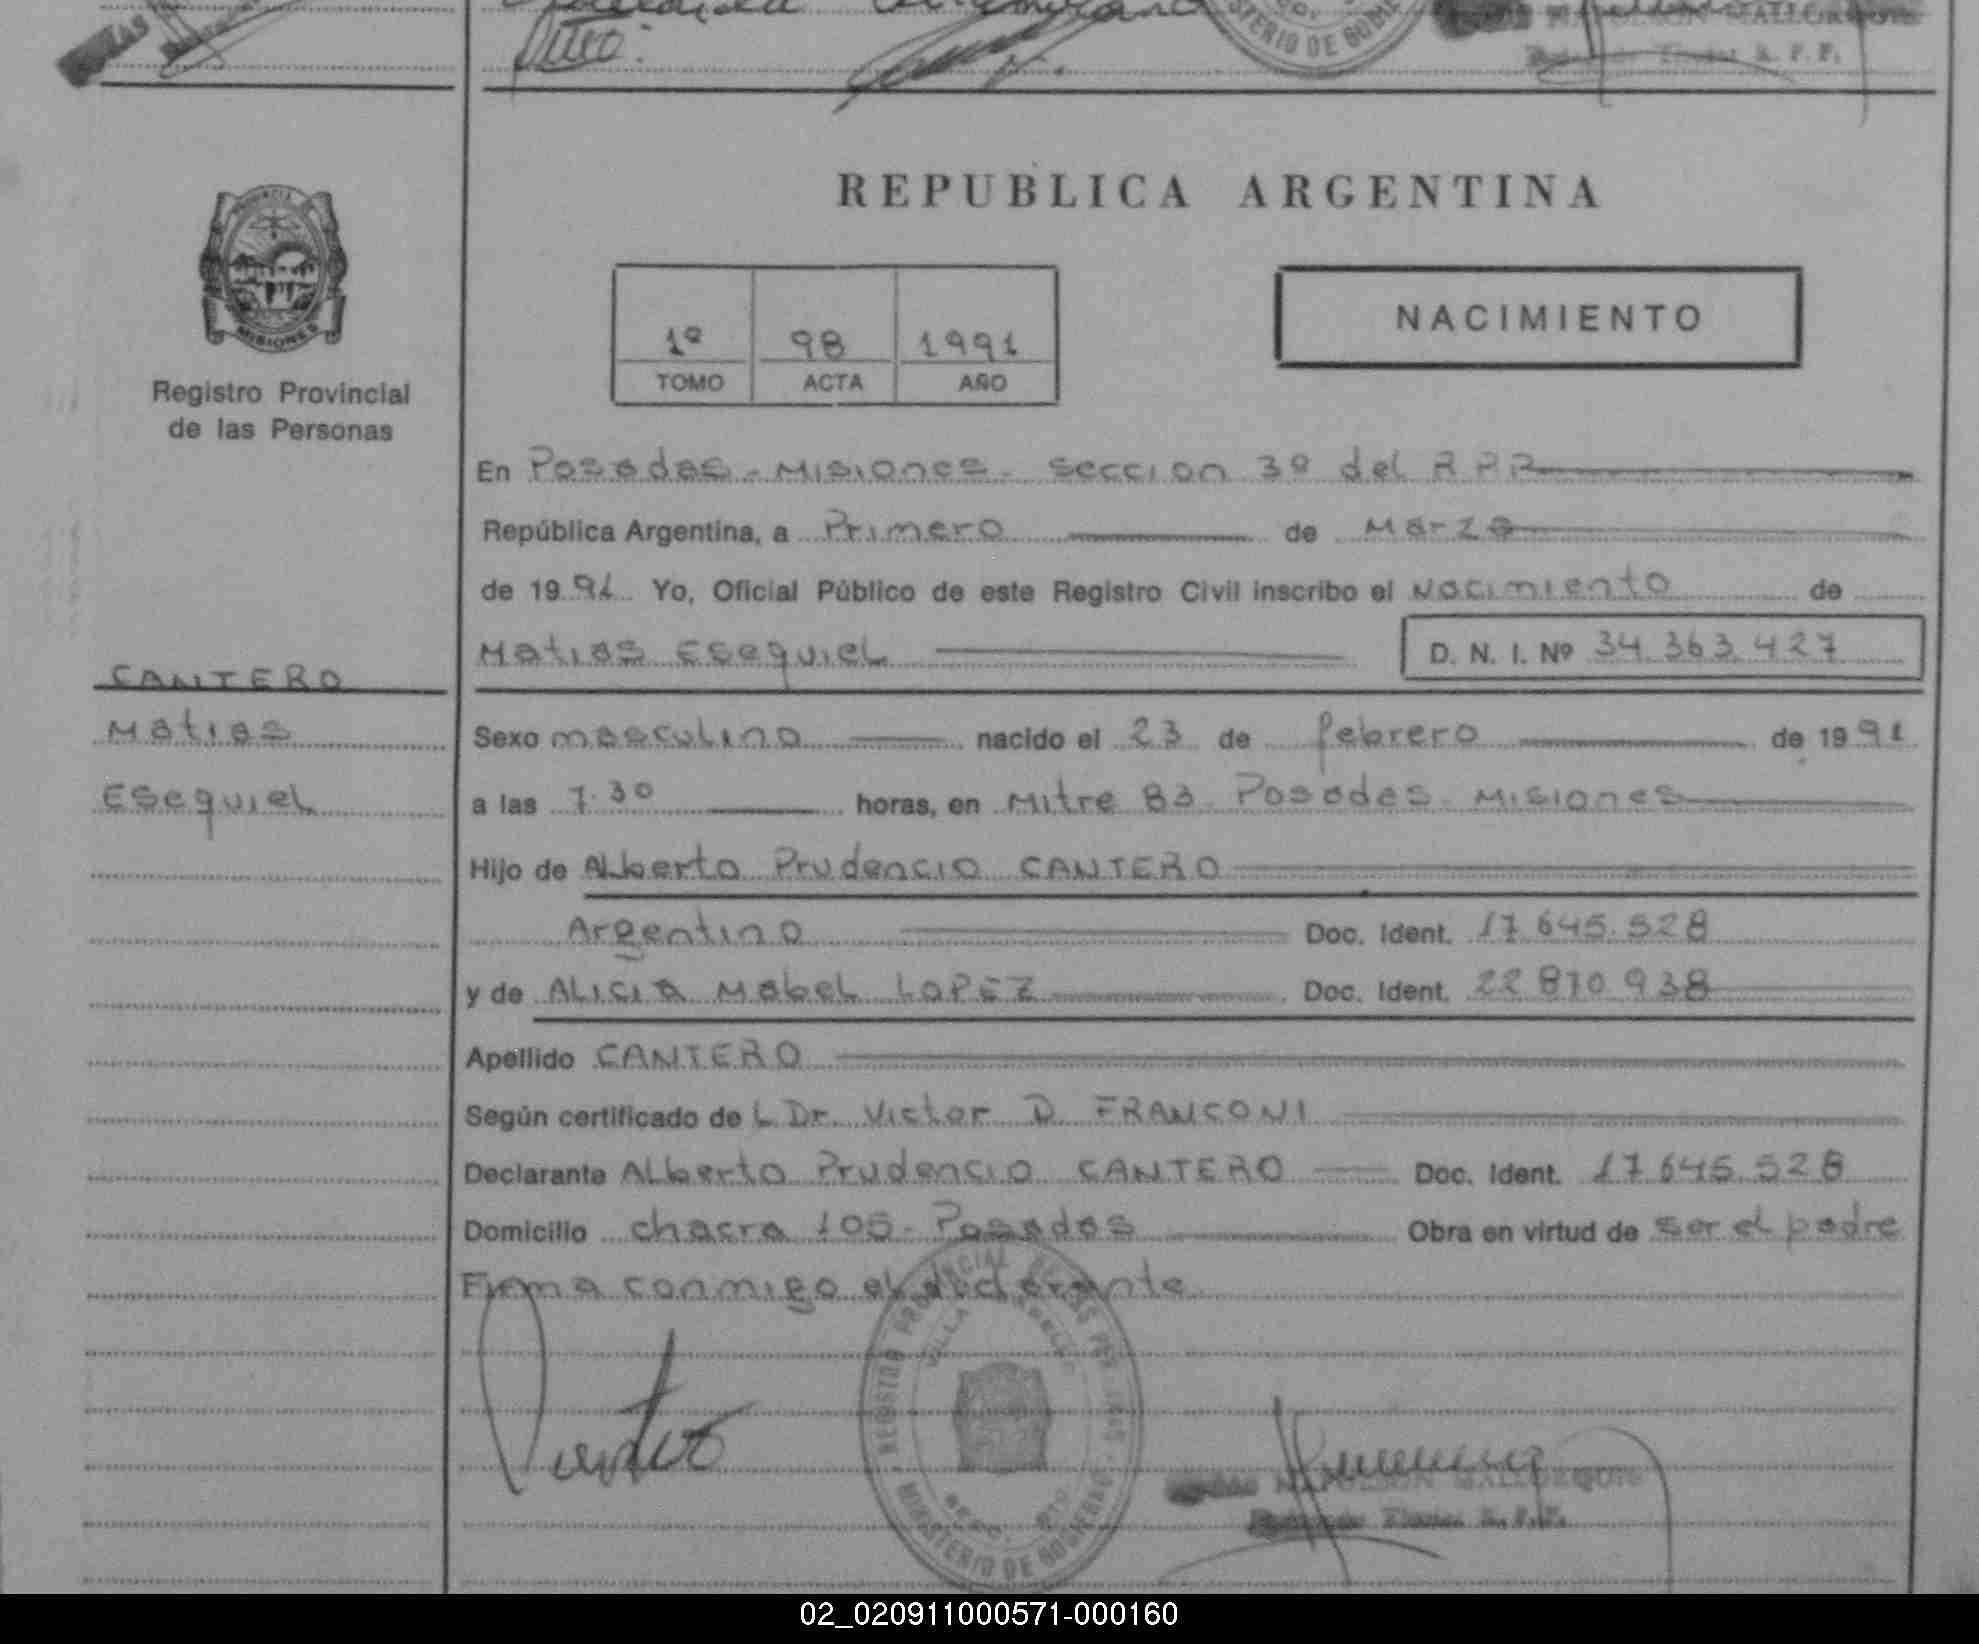 R. P. P.
MINISTERIO DE GOBIERNO
PROVINCIA
MISIONES
Registro Provincial
de las Personas
REPUBLICA ARGENTINA
1º 98 1991
TOMO ACTA AÑO
NACIMIENTO
En Posadas - Misiones - seccion 3º del R.P.P.
República Argentina, a Primero de Marzo
de 1991 Yo, Oficial Público de este Registro Civil inscribo el nacimiento de
Matias Esequiel D. N. I. Nº 34.363.427
CANTERO
Matias
Esequiel
Sexo masculino nacido el 23 de febrero de 1991
a las 7.30 horas, en Mitre 83 Posadas - Misiones
Hijo de Alberto Prudencio CANTERO
Argentino Doc. Ident. 17.645.528
y de ALICIA Mabel LOPEZ Doc. Ident. 22.870.938
Apellido CANTERO
Según certificado del Dr. Victor D. FRANCONI
Declarante Alberto Prudencio CANTERO Doc. Ident. 17.645.528
Domicilio chacra 105 - Posadas Obra en virtud de ser el padre
Firma conmigo el declarante
REGISTRO PROVINCIAL DE LAS PERSONAS
VILLA
MINISTERIO DE GOBIERNO
NAPOLEON MALLORQUIN
R. P. P.
02_020911000571-000160